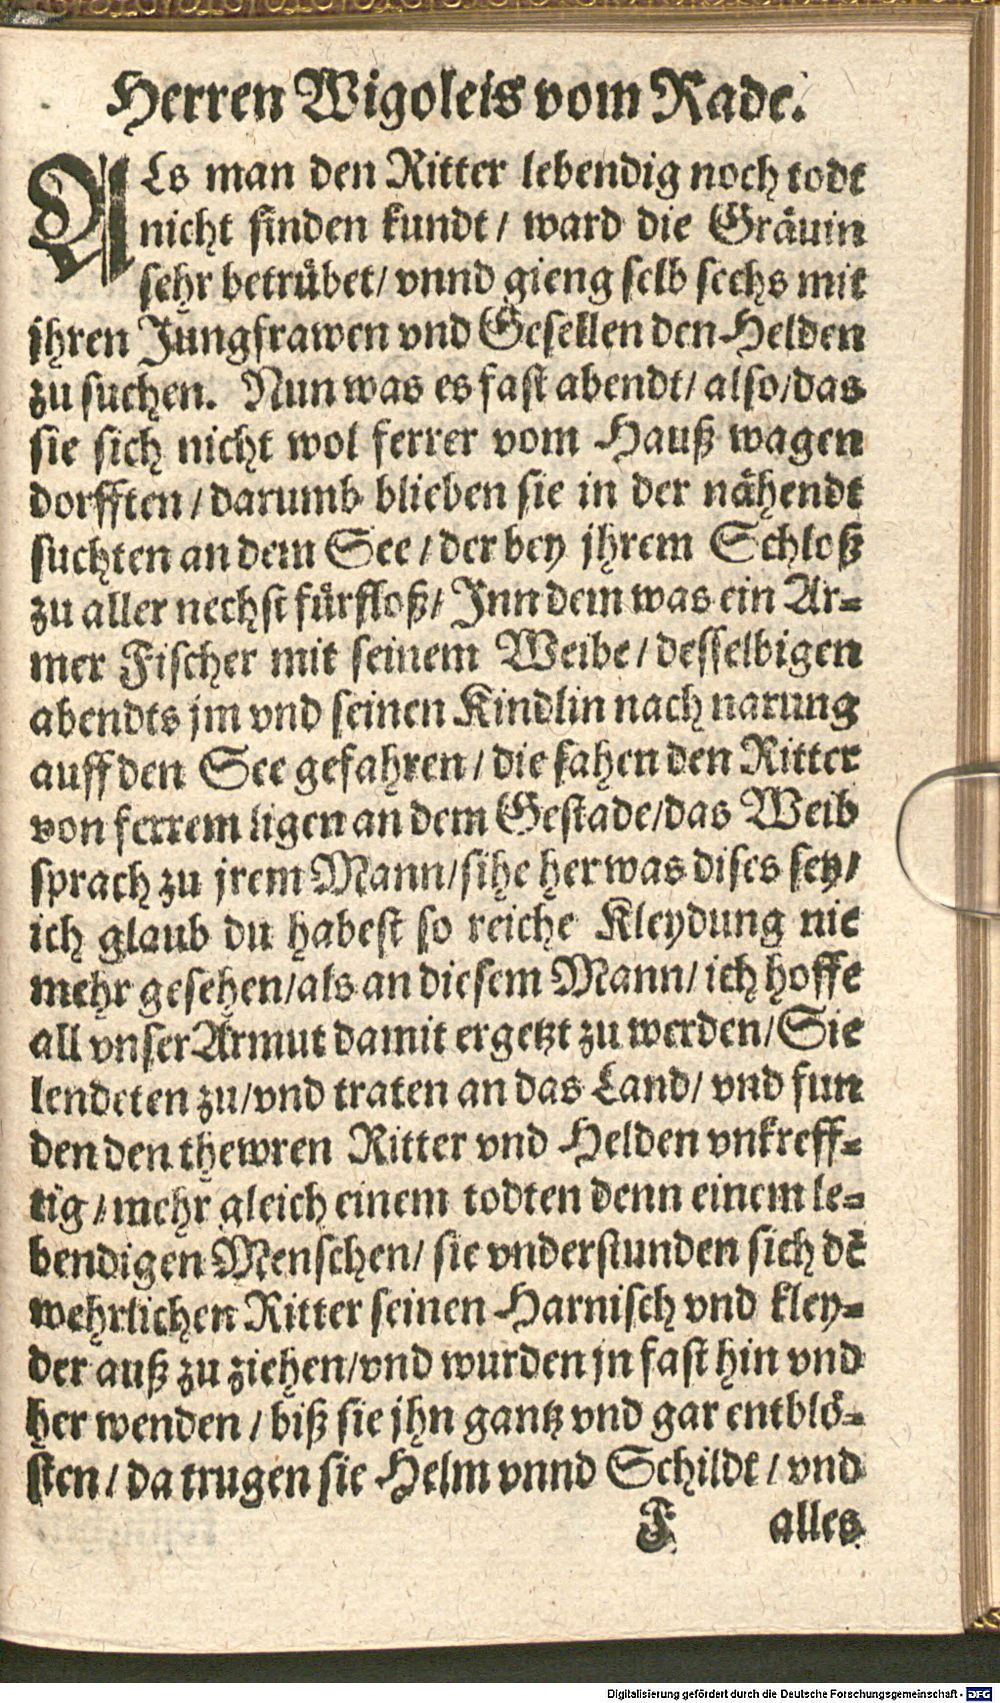 Herren Wigoleis vom Rade.
ALs man den Ritter lebendig noch todt
nicht finden kundt / ward die Gräuin
sehr betrübet / vnnd gieng selb sechs mit
jhren Jungfrawen vnd Gesellen den Helden
zu suchen. Nun was es fast abendt / also / das
sie sich nicht wol ferrer vom Hauß wagen
dorfften / darumb blieben sie in der nähendt
suchten an dem See / der bey jhrem Schloß
zu aller nechst fürfloß / Inn dem was ein Ar-
mer Fischer mit seinem Weibe / desselbigen
abendts jm vnd seinen Kindlin nach narung
auff den See gefahren / die sahen den Ritter
von ferrem ligen an dem Gestade / das Weib
sprach zu jrem Mann / sihe her was dises sey /
ich glaub du habest so reiche Kleydung nie
mehr gesehen / als an diesem Mann / ich hoffe
all vnser Armut damit ergetzt zu werden / Sie
lendeten zu / vnd traten an das Land / vnd fun
den den thewren Ritter vnd Helden vnkreff-
tig / mehr gleich einem todten denn einem le-
bendigen Menschen / sie vnderstunden sich dē
wehrlichen Ritter seinen Harnisch vnd kley-
der auß zu ziehen / vnd wurden jn fast hin vnd
her wenden / biß sie jhn gantz vnd gar entblö-
sten / da trugen sie Helm vnnd Schildt / vnd
F alles
Digitalisierung gefördert durch die Deutsche Forschungsgemeinschaft - DFG